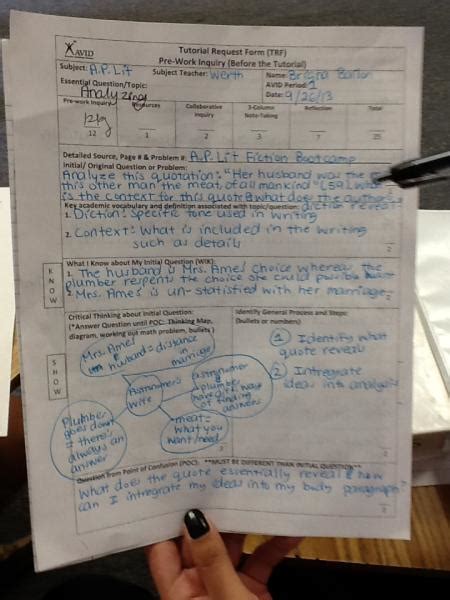 AVID
Tutorial Request Form (TRF)
Pre-Work Inquiry (Before the Tutorial)
Subject: A.P. Lit
Subject Teacher: Werth
Name: Briana
AVID Period: 1
Date: 9/26/13
Essential Question/Topic:
Analyzing
Pre-work Inquiry
Resources
Collaborative Inquiry
3-Column Note-Taking
Reflection
Total
12
1
2
3
7
25
Detailed Source, Page # & Problem #: A.P. Lit Fiction Bootcamp
Initial/ Original Question or Problem:
Analyze this quotation: "Her husband was the
this other man the meat, of all mankind" (59). What
is the context for this quote & what does the author's
Key academic vocabulary and definition associated with topic/question: diction reveal?
1. Diction: specific tone used in writing
2. Context: What is included in the writing
such as details
2
KNOW
What I Know about My Initial Question (WIK):
1. The husband is Mrs. Ames' choice whereas the
plumber respents the choice she could possible
2. Mrs. Ames is un-statisfied with her marriage.
2
SHOW
Critical Thinking about Initial Question:
(*Answer Question until POC: Thinking Map,
diagram, working out math problem, bullets )
Mrs. Ames
husband = distance
in marriage
Astronomer's
wife
astronomer
&
plumber
have diff. ways
of finding
answers
Plumber
goes down
if there's
always an
answer
meat =
what you
want/need
3
Identify General Process and Steps:
(bullets or numbers)
1 Identity what
quote reveals
2 Intregrate
ideas into analysis
2
Question from Point of Confusion (POC): **MUST BE DIFFERENT THAN INITIAL QUESTION**
What does the quote essentially reveal & how
can I intregrate my ideas into my body paragraph?